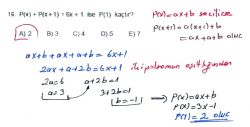 16. P(x) + P(x+1) = 6x + 1 ise P(1) kaçtır?
A) 2 B) 3 C) 4 D) 5 E) 7
P(x)=ax+b seçilirse
P(x+1)=a(x+1)+b
=ax+a+b olur.
ax+b+ax+a+b=6x+1
2ax+a+2b=6x+1
2a=6 a+2b=1
a=3 3+2b=1
b=-1
→ P(x)=ax+b
P(x)=3x-1
P(1)=2 olur.